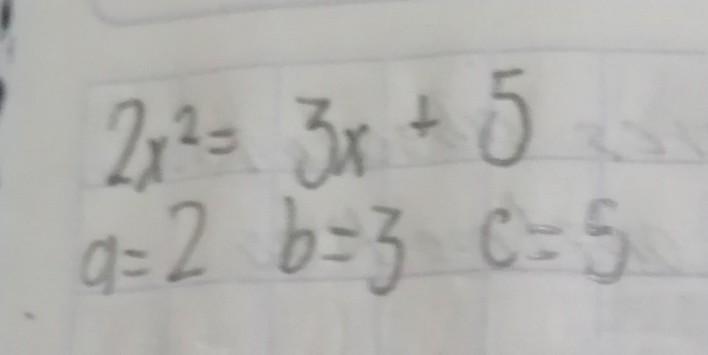 2x² = 3x + 5
a = 2 b = 3 c = 5